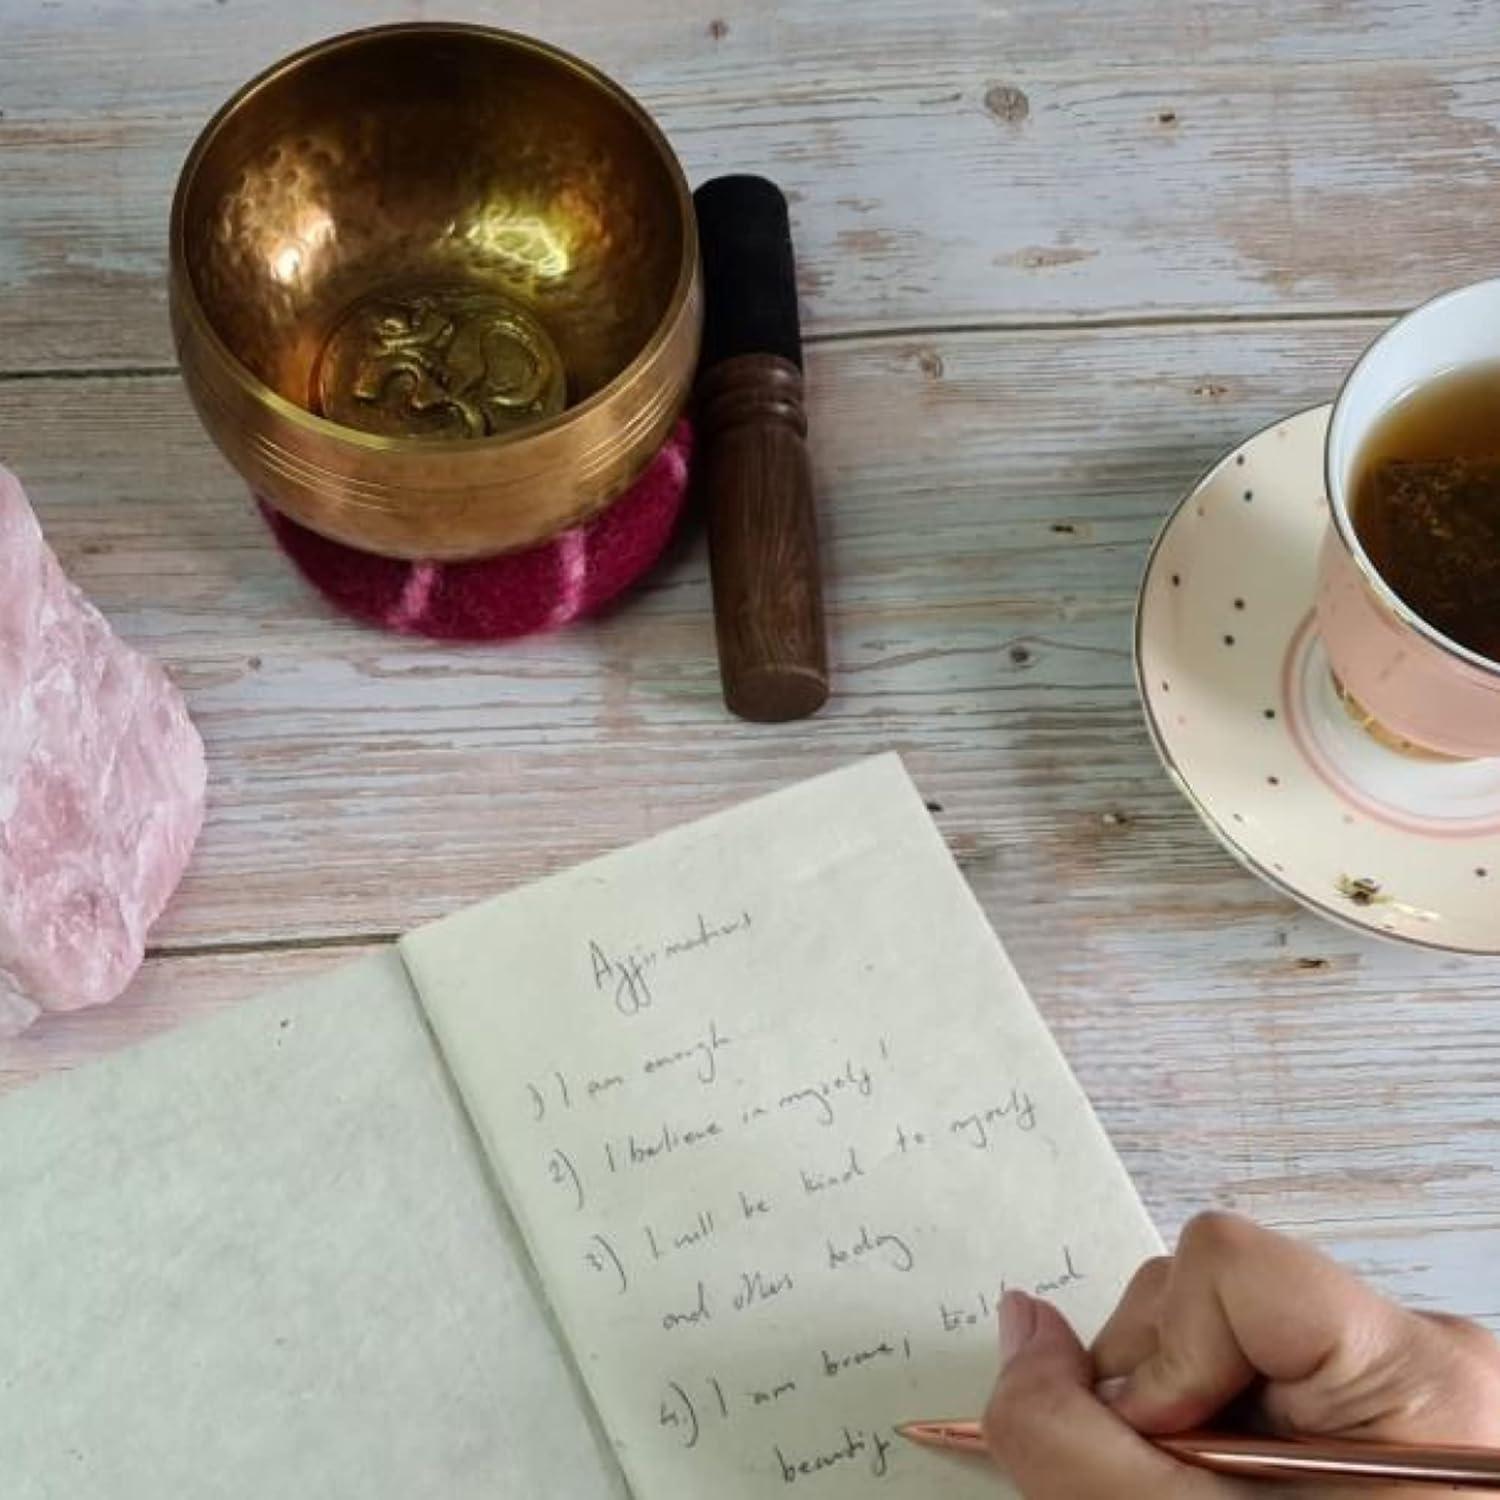 Affirmations
1) I am enough
2) I believe in myself!
3) I will be kind to myself
and others today..
4.) I am brave, and
beautif